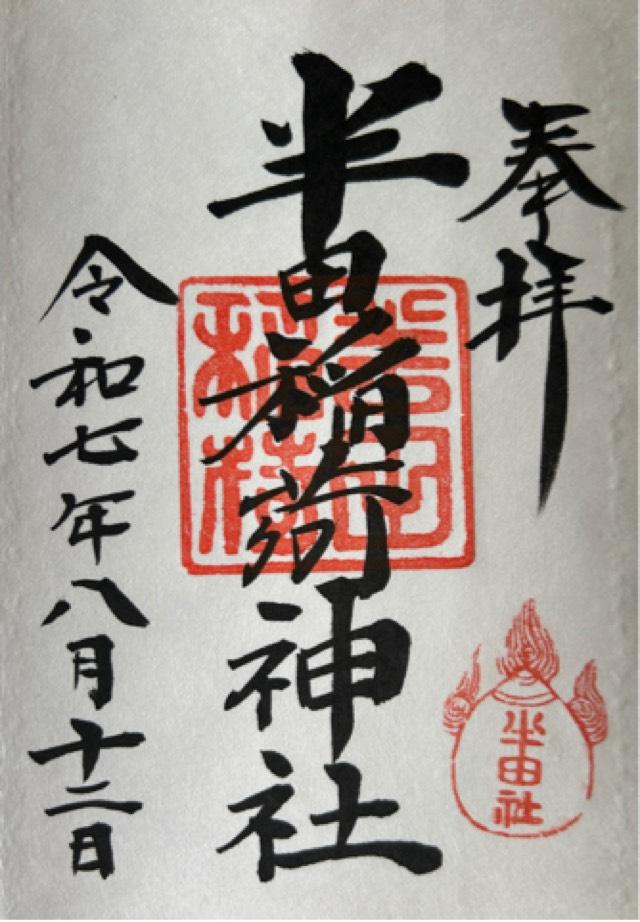 奉拝
半田稲荷神社
半田社
令和七年八月十二日